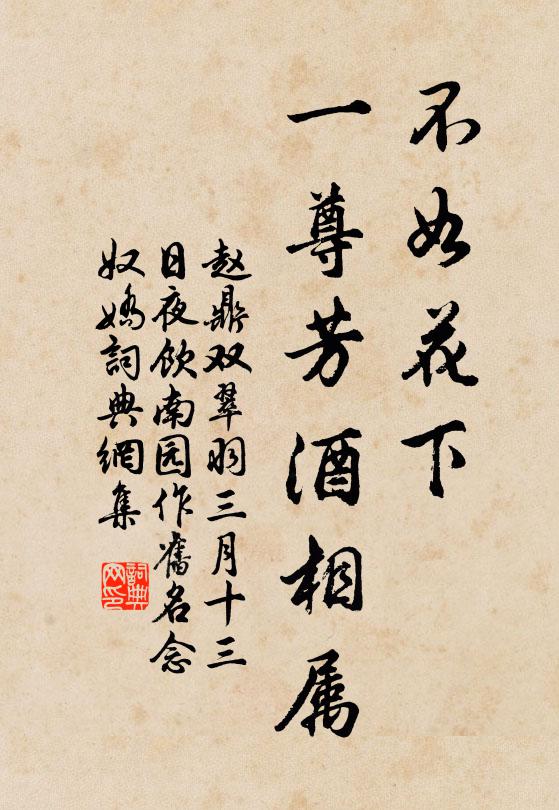 不如花下
一尊芳酒相属
赵鼎双翠羽三月十三
日夜饮南园作旧名念
奴嬌詞典網集
詞典
网印